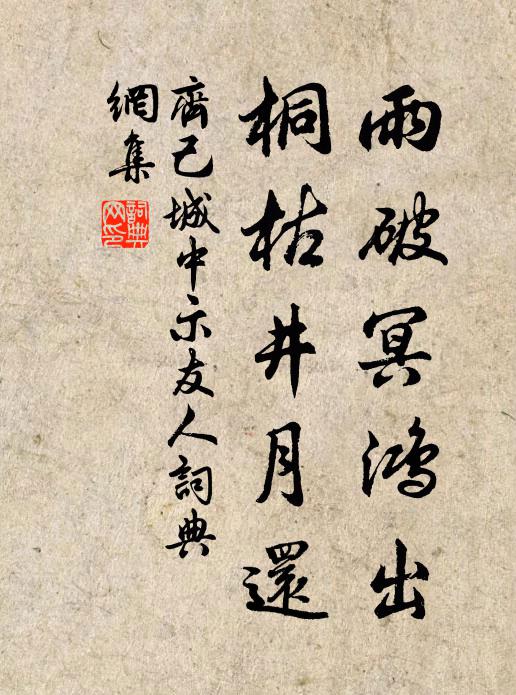 雨破冥鴻出
桐枯井月還
齊己城中示友人詞典
網集
詞典
网印